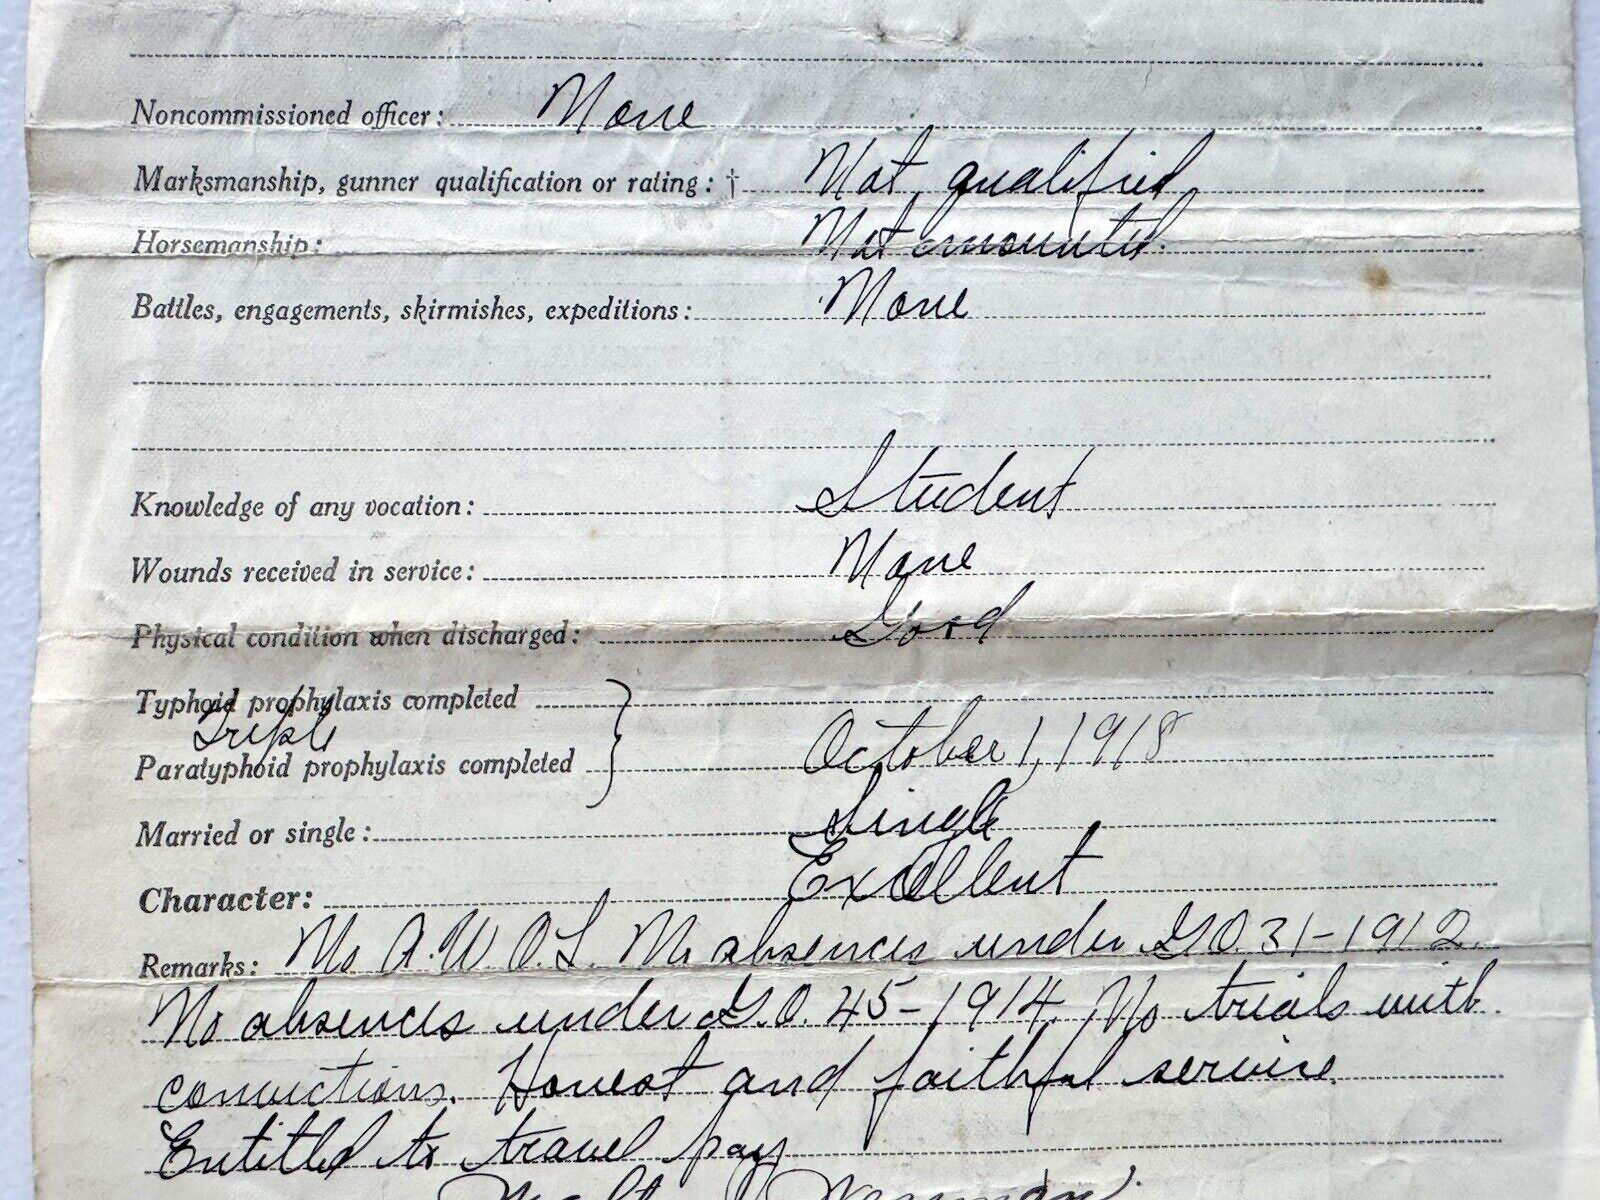 Noncommissioned officer: None
Marksmanship, gunner qualification or rating: † Not qualified
Horsemanship: Not mounted.
Battles, engagements, skirmishes, expeditions: None
Knowledge of any vocation: Student
Wounds received in service: None
Physical condition when discharged: Good
Typhoid prophylaxis completed
Triple
Paratyphoid prophylaxis completed October 1, 1918
Married or single: Single
Character: Excellent
Remarks: No A.W.O.L. No absences under G.O. 31-1912.
No absences under G.O. 45-1914. No trials with
convictions. Honest and faithful service.
Entitled to travel pay